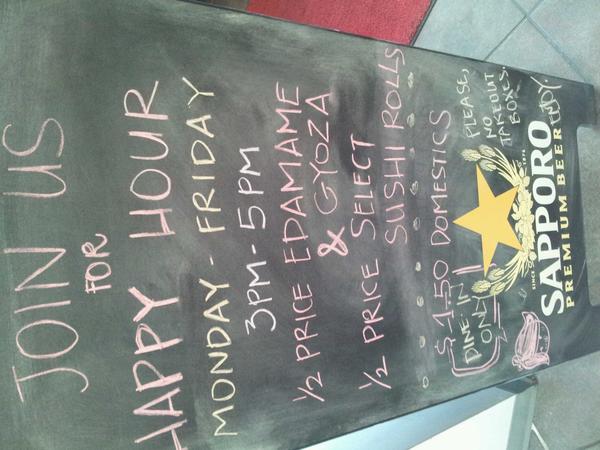 JOIN US
FOR
HAPPY HOUR
MONDAY - FRIDAY
3PM - 5PM
1/2 PRICE EDAMAME
& GYOZA
1/2 PRICE SELECT
SUSHI ROLLS
$1.50 DOMESTICS
DINE IN
ONLY
PLEASE,
NO
TAKEOUT
BOXES.
SINCE 1876
SAPPORO
PREMIUM BEER